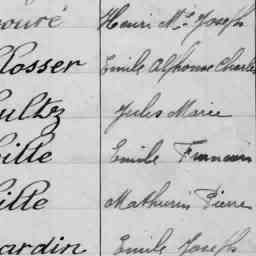 ouré Henri M. Joseph
losser Emile Alphonse Charles
ultz Jules Marie
ille Emile Francois
ille Mathurin Pierre
ardin Emile Joseph